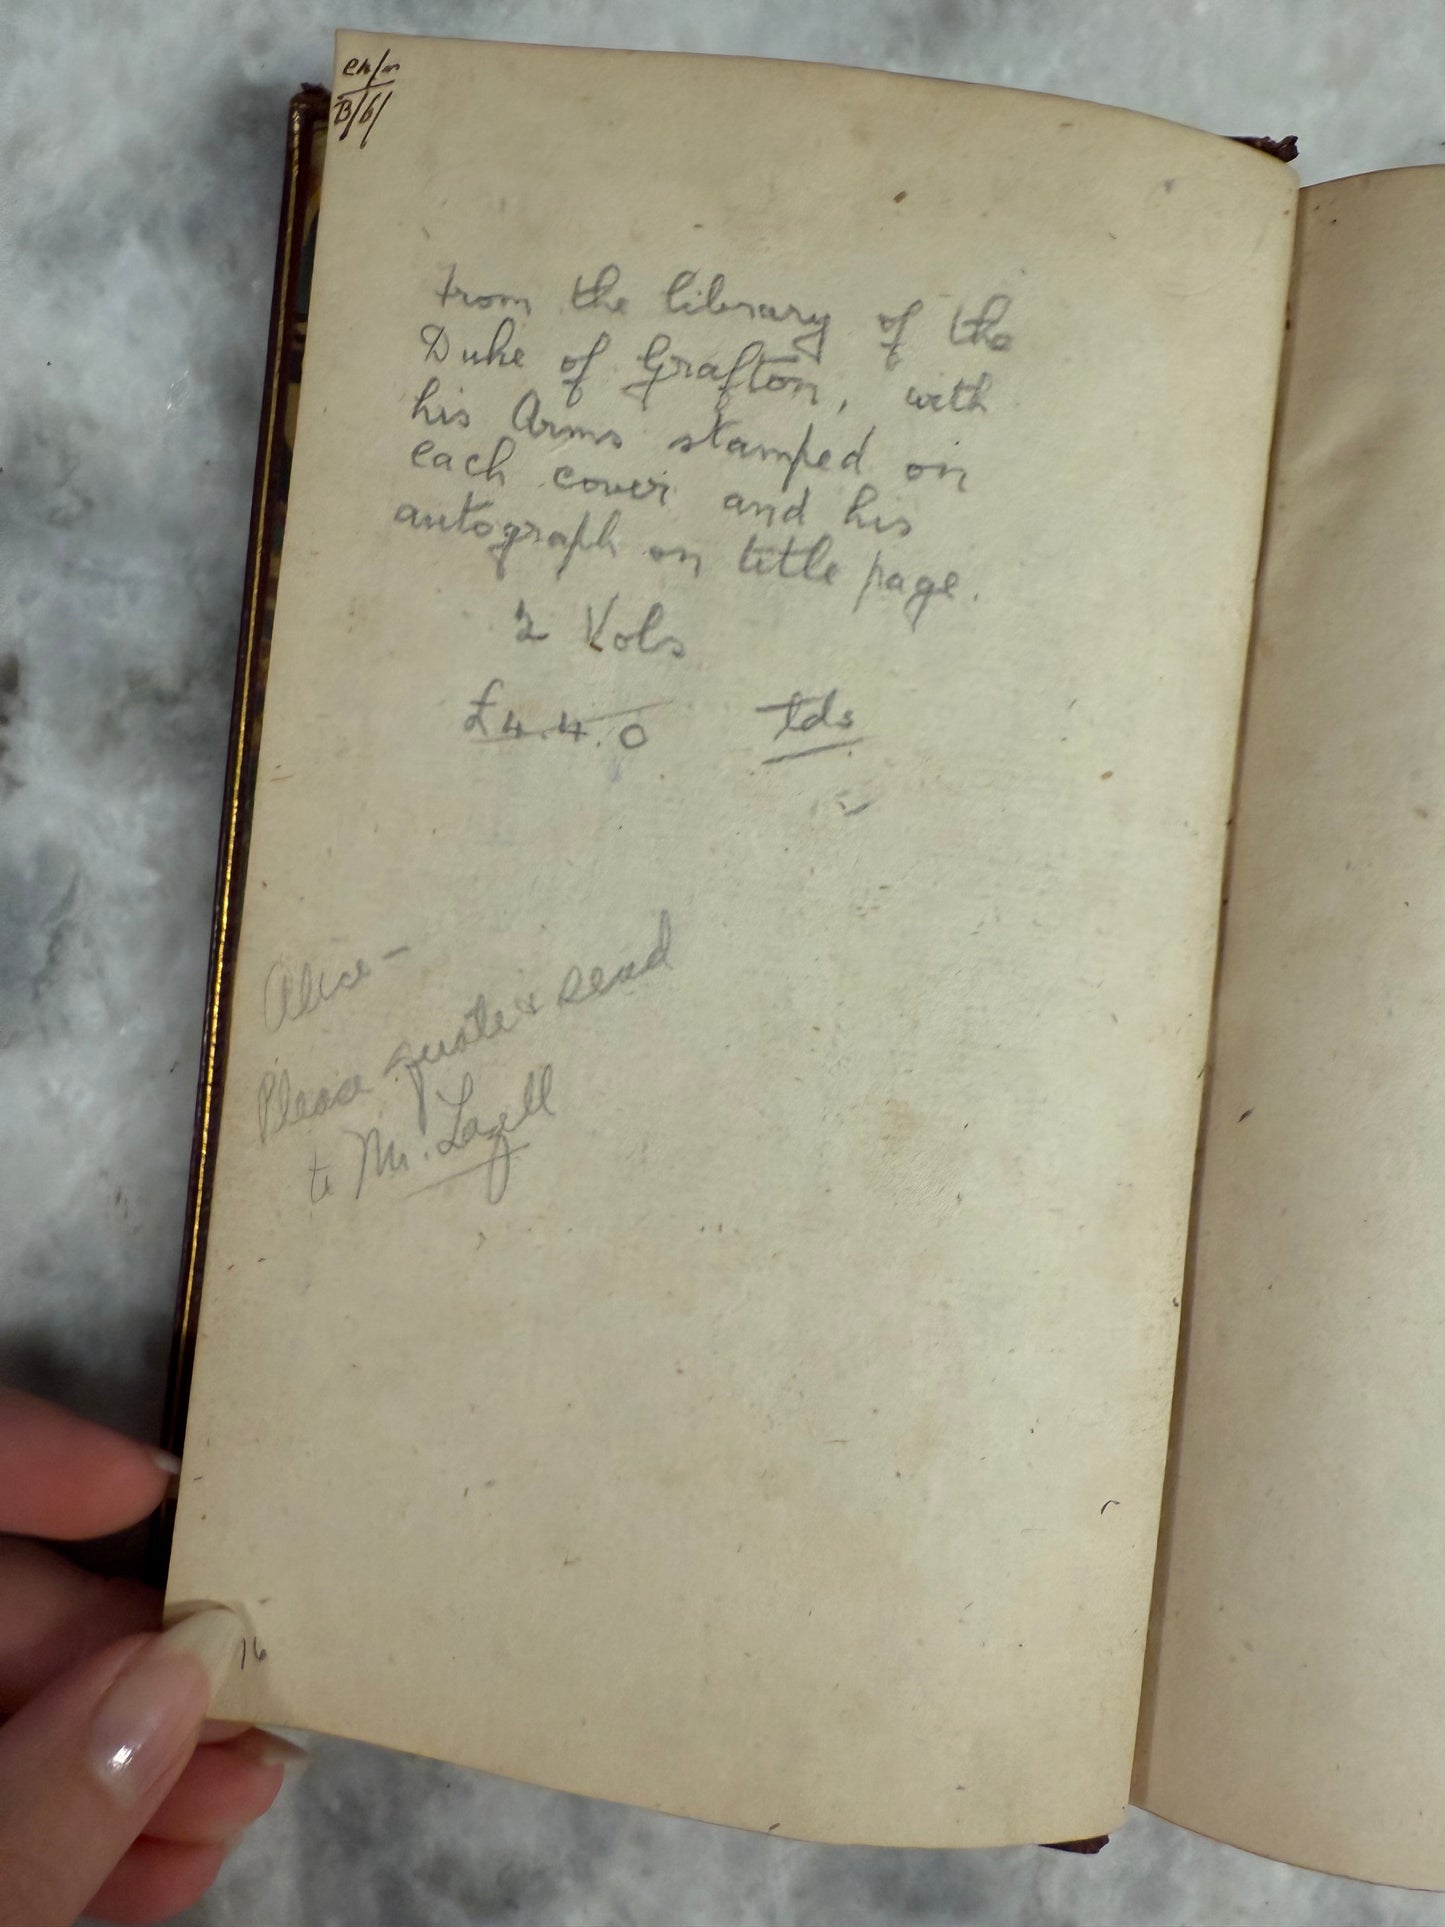 B/6/
From the library of the
Duke of Grafton, with
his Arms stamped on
each cover and his
autograph on title page.
2 Vols
£4.4.0 tds
Alice -
Please quote & send
to Mr. Lazell
16